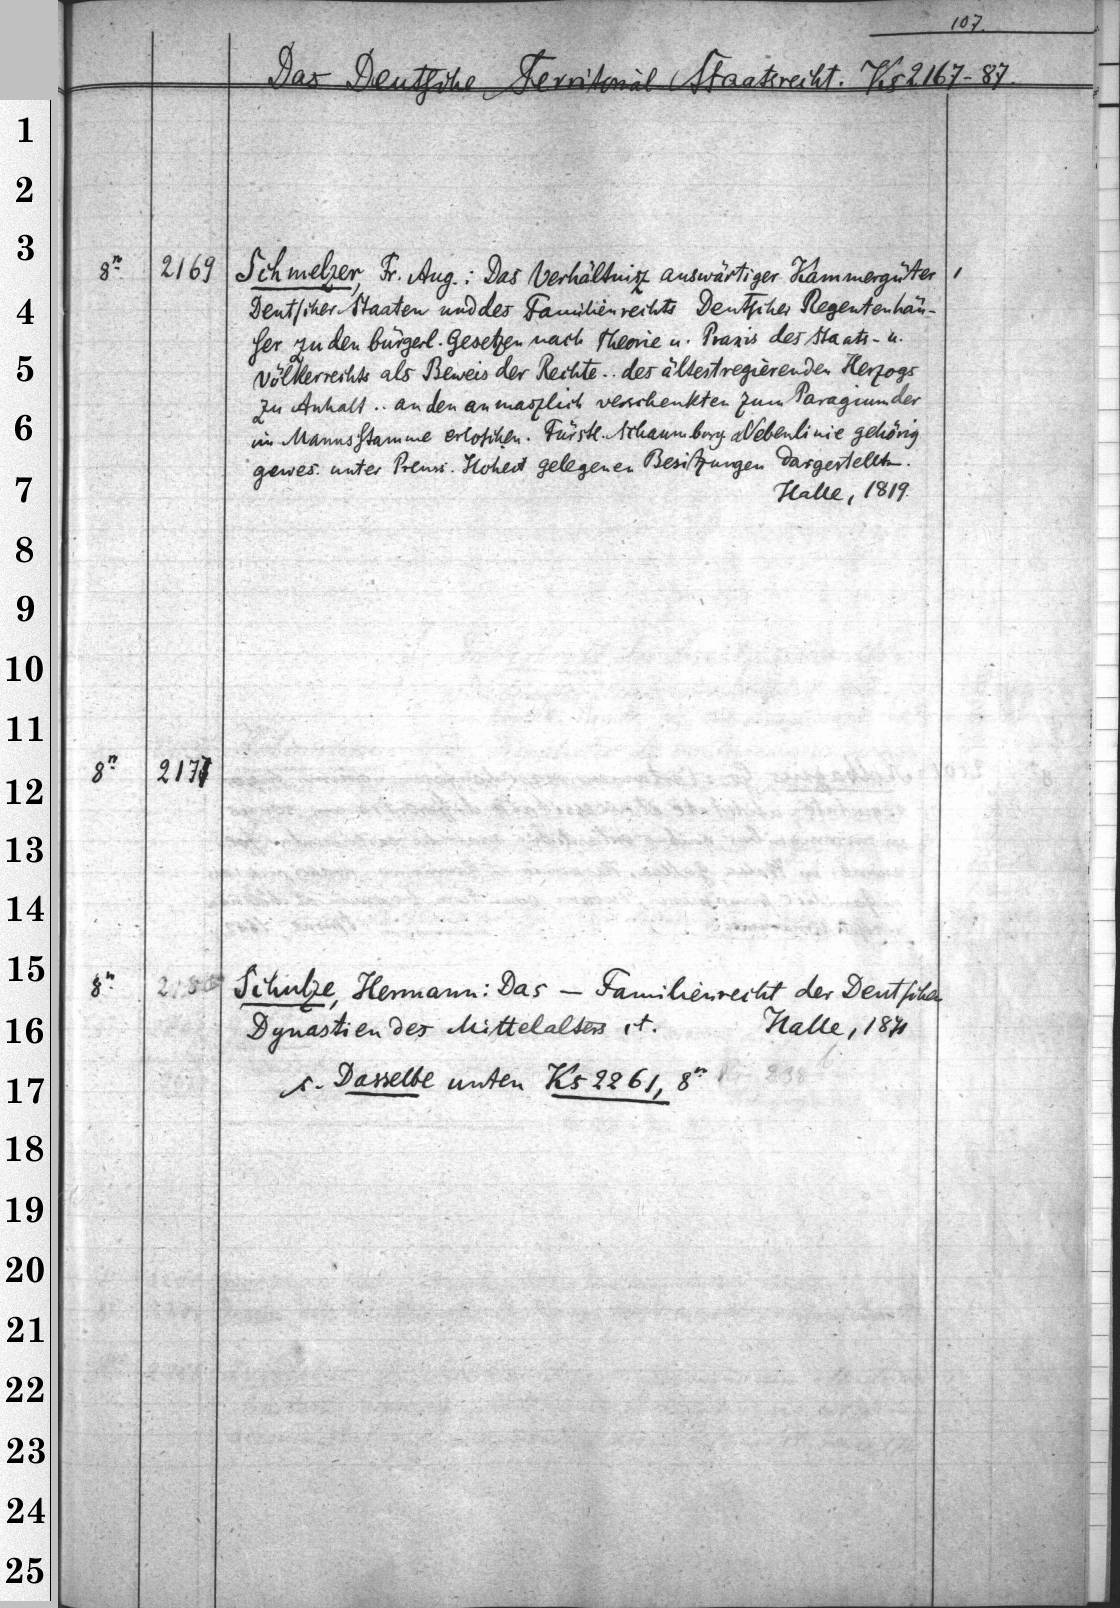 107.
Das Deutsche Territorial Staatsrecht. Ks 2167-87.
1
2
3
8º 2169 Schmelzer, Fr. Aug.: Das Verhältnisz auswärtiger Kammergüter 1
4
Deutscher Staaten und des Familienrechts Deutscher Regentenhäu-
ser zu den bürgerl. Gesetzen nach Theorie u. Praxis des Staats- u.
5
Völkerrechts als Beweis der Rechte .. des ältestregierenden Herzogs
zu Anhalt .. an den anmaszlich verschenkten zum Paragium der
6
im Mannsstamme erloschen. Fürstl. Schaumburg. Nebenlinie gehörig
gewes. unter Preuss. Hoheit gelegenen Besitzungen dargestellt.
7
Halle, 1819.
8
9
10
11
8º 2171
12
13
14
15
8º Schulze, Hermann: Das — Familienrecht der Deutschen
16
Dynastien des Mittelalters Halle, 1871
17
s. Dasselbe unten Ks 2261, 8º
18
19
20
21
22
23
24
25